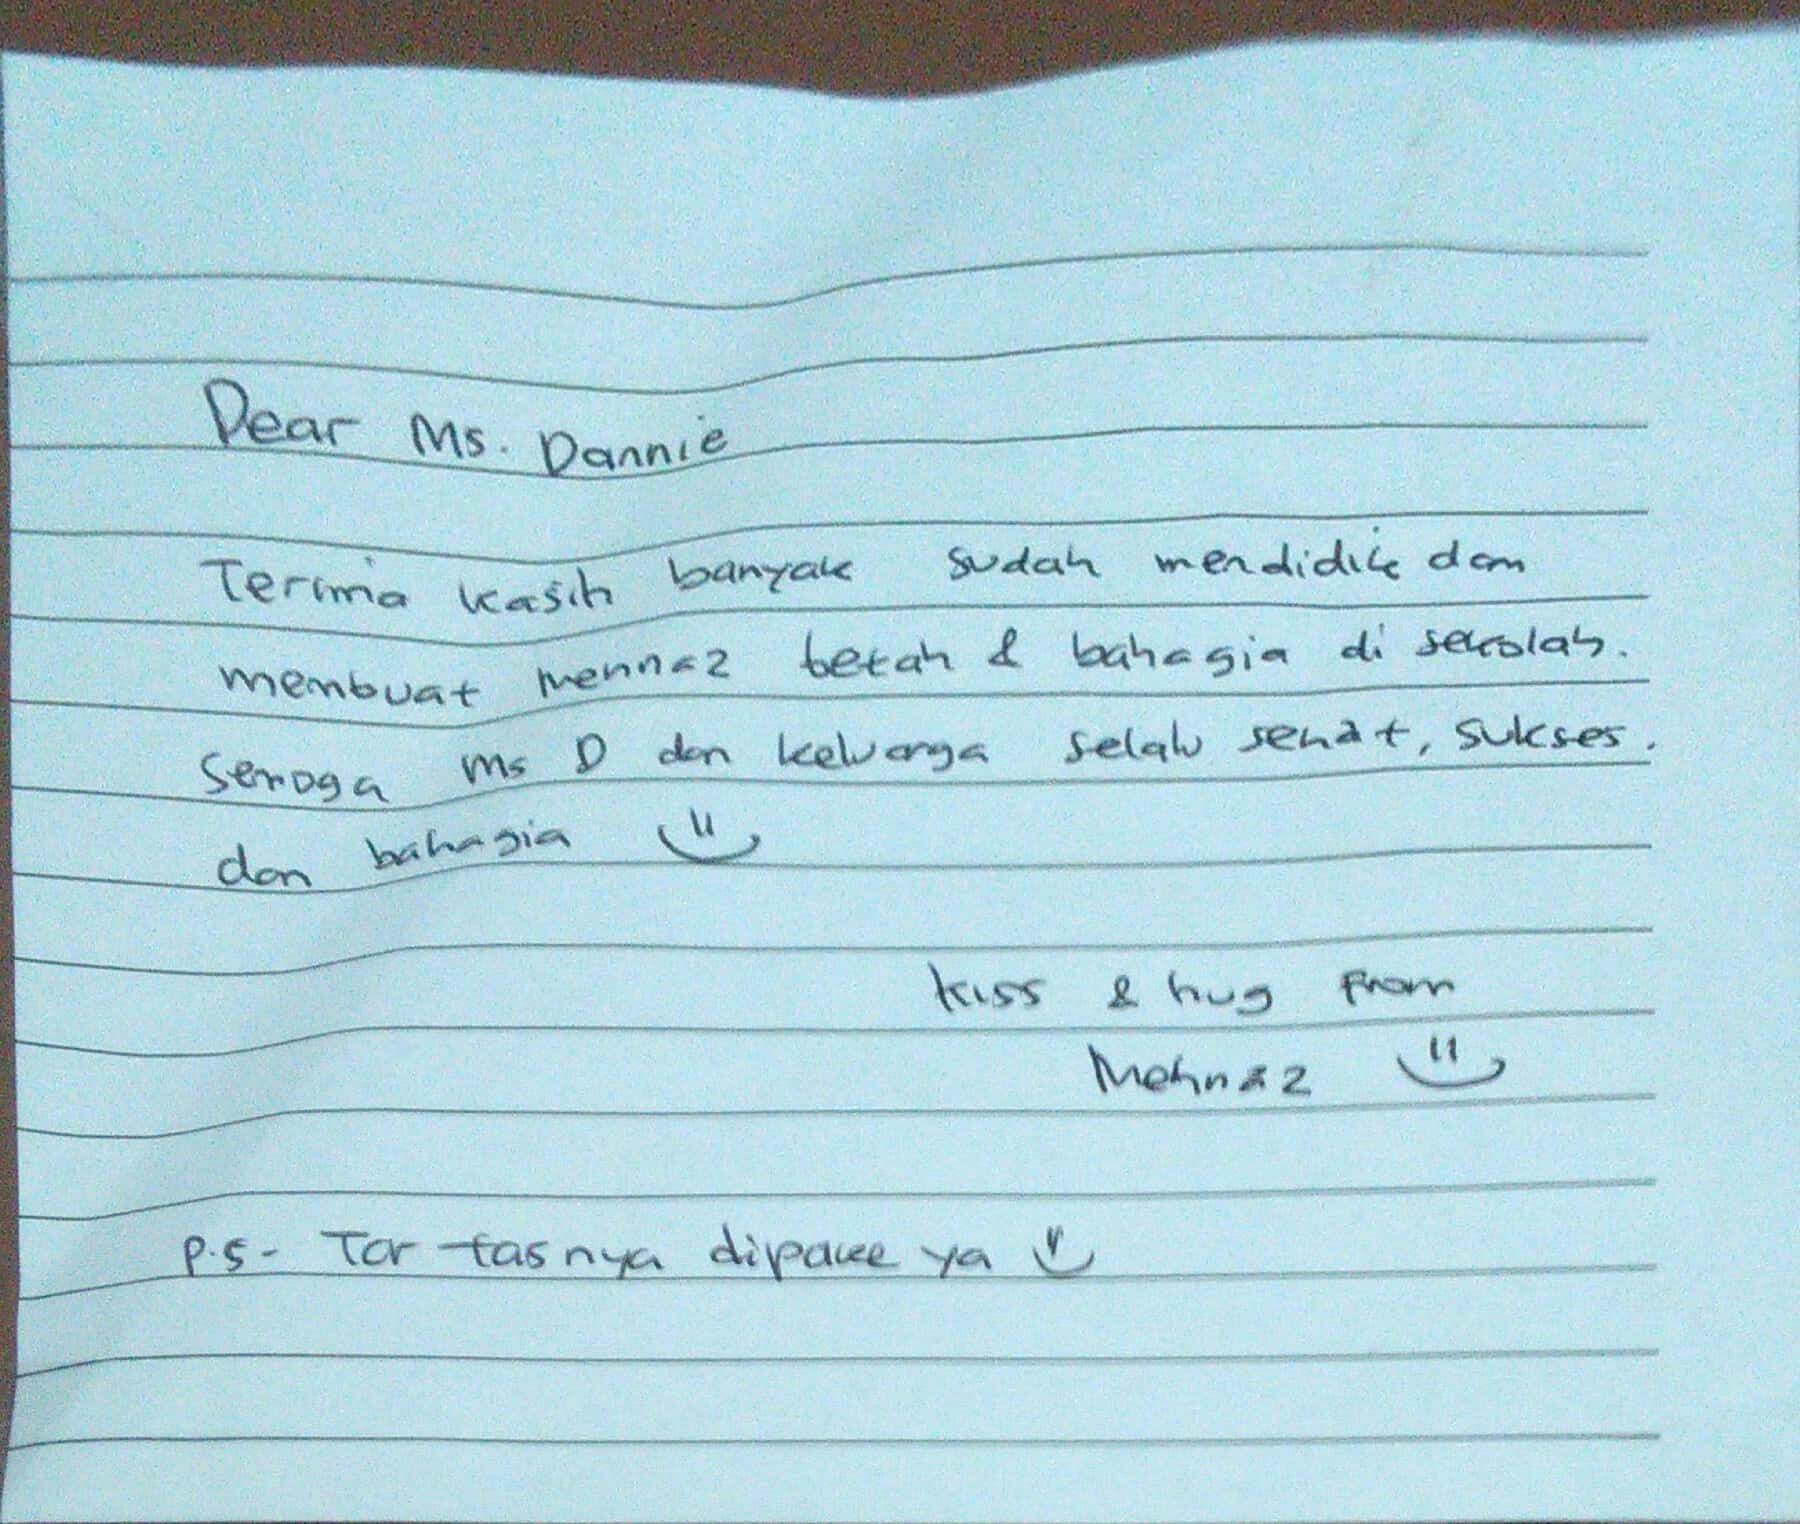 Dear Ms. Dannie
Terima kasih banyak sudah mendidik dan
membuat mehnaz betah & bahagia di sekolah.
Semoga Ms D dan keluarga selalu sehat, sukses.
dan bahagia
kiss & hug from
Mehnaz
P.S - Tar tasnya dipake ya